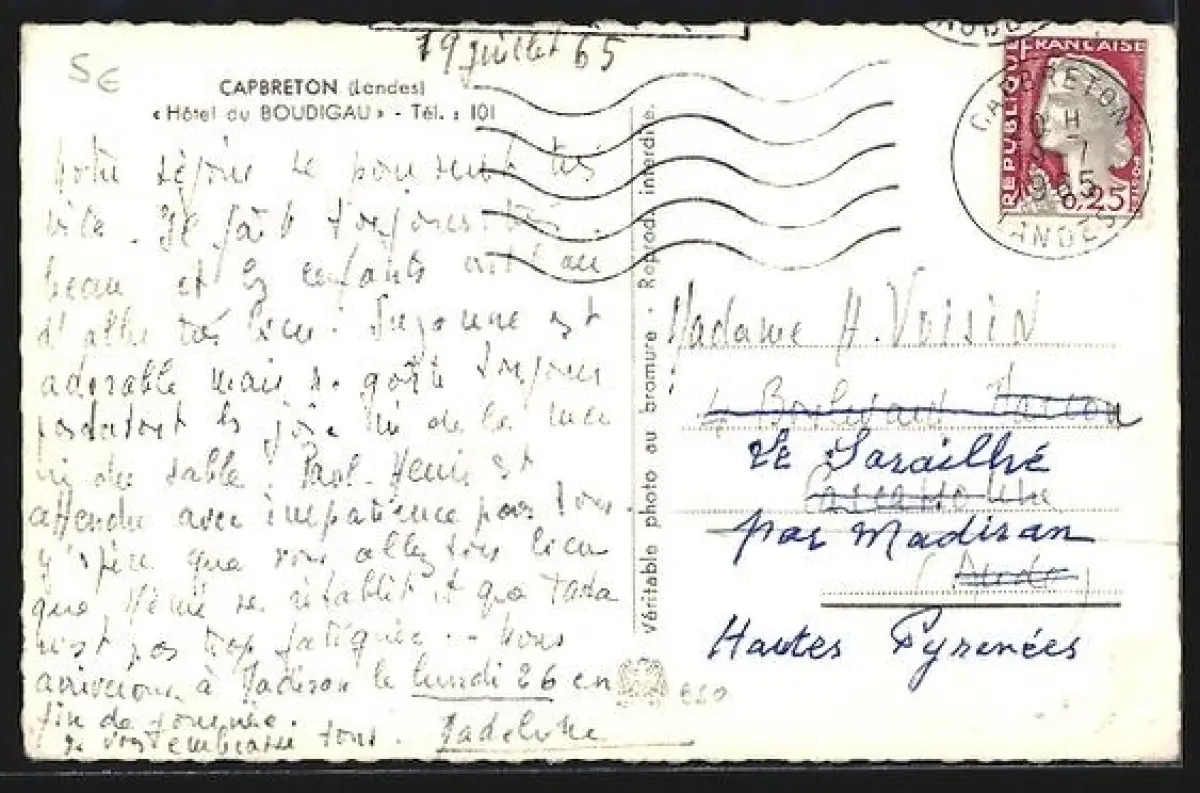 5€
19 juillet 65
CAPBRETON (Landes)
« Hôtel du BOUDIGAU » - Tél. : 101
Notre séjour se poursuit très
vite. Il fait toujours très
beau et les enfants ont l'air
d'aller très bien. Suzanne est
adorable mais ne goûte toujours
pourtant les joies ni de la mer
ni du sable. Paul-Henri est
attendu avec impatience par tous.
J'espère que vous allez tous bien
que Mémé se rétablit et que Tata
n'est pas trop fatiguée... Nous
arriverons à Madiran le lundi 26 en
fin de journée.
Je vous embrasse tous. Madeleine
Véritable photo au bromure - Reprod. interdite.
REPUBLIQUE FRANÇAISE
POSTES
0,25
CAPBRETON
H
1965
LANDES
Madame H. VOISIN
4 Boulevard
Le Sarailhé
Carcassonne
par Madiran
(Aude)
Hautes Pyrénées